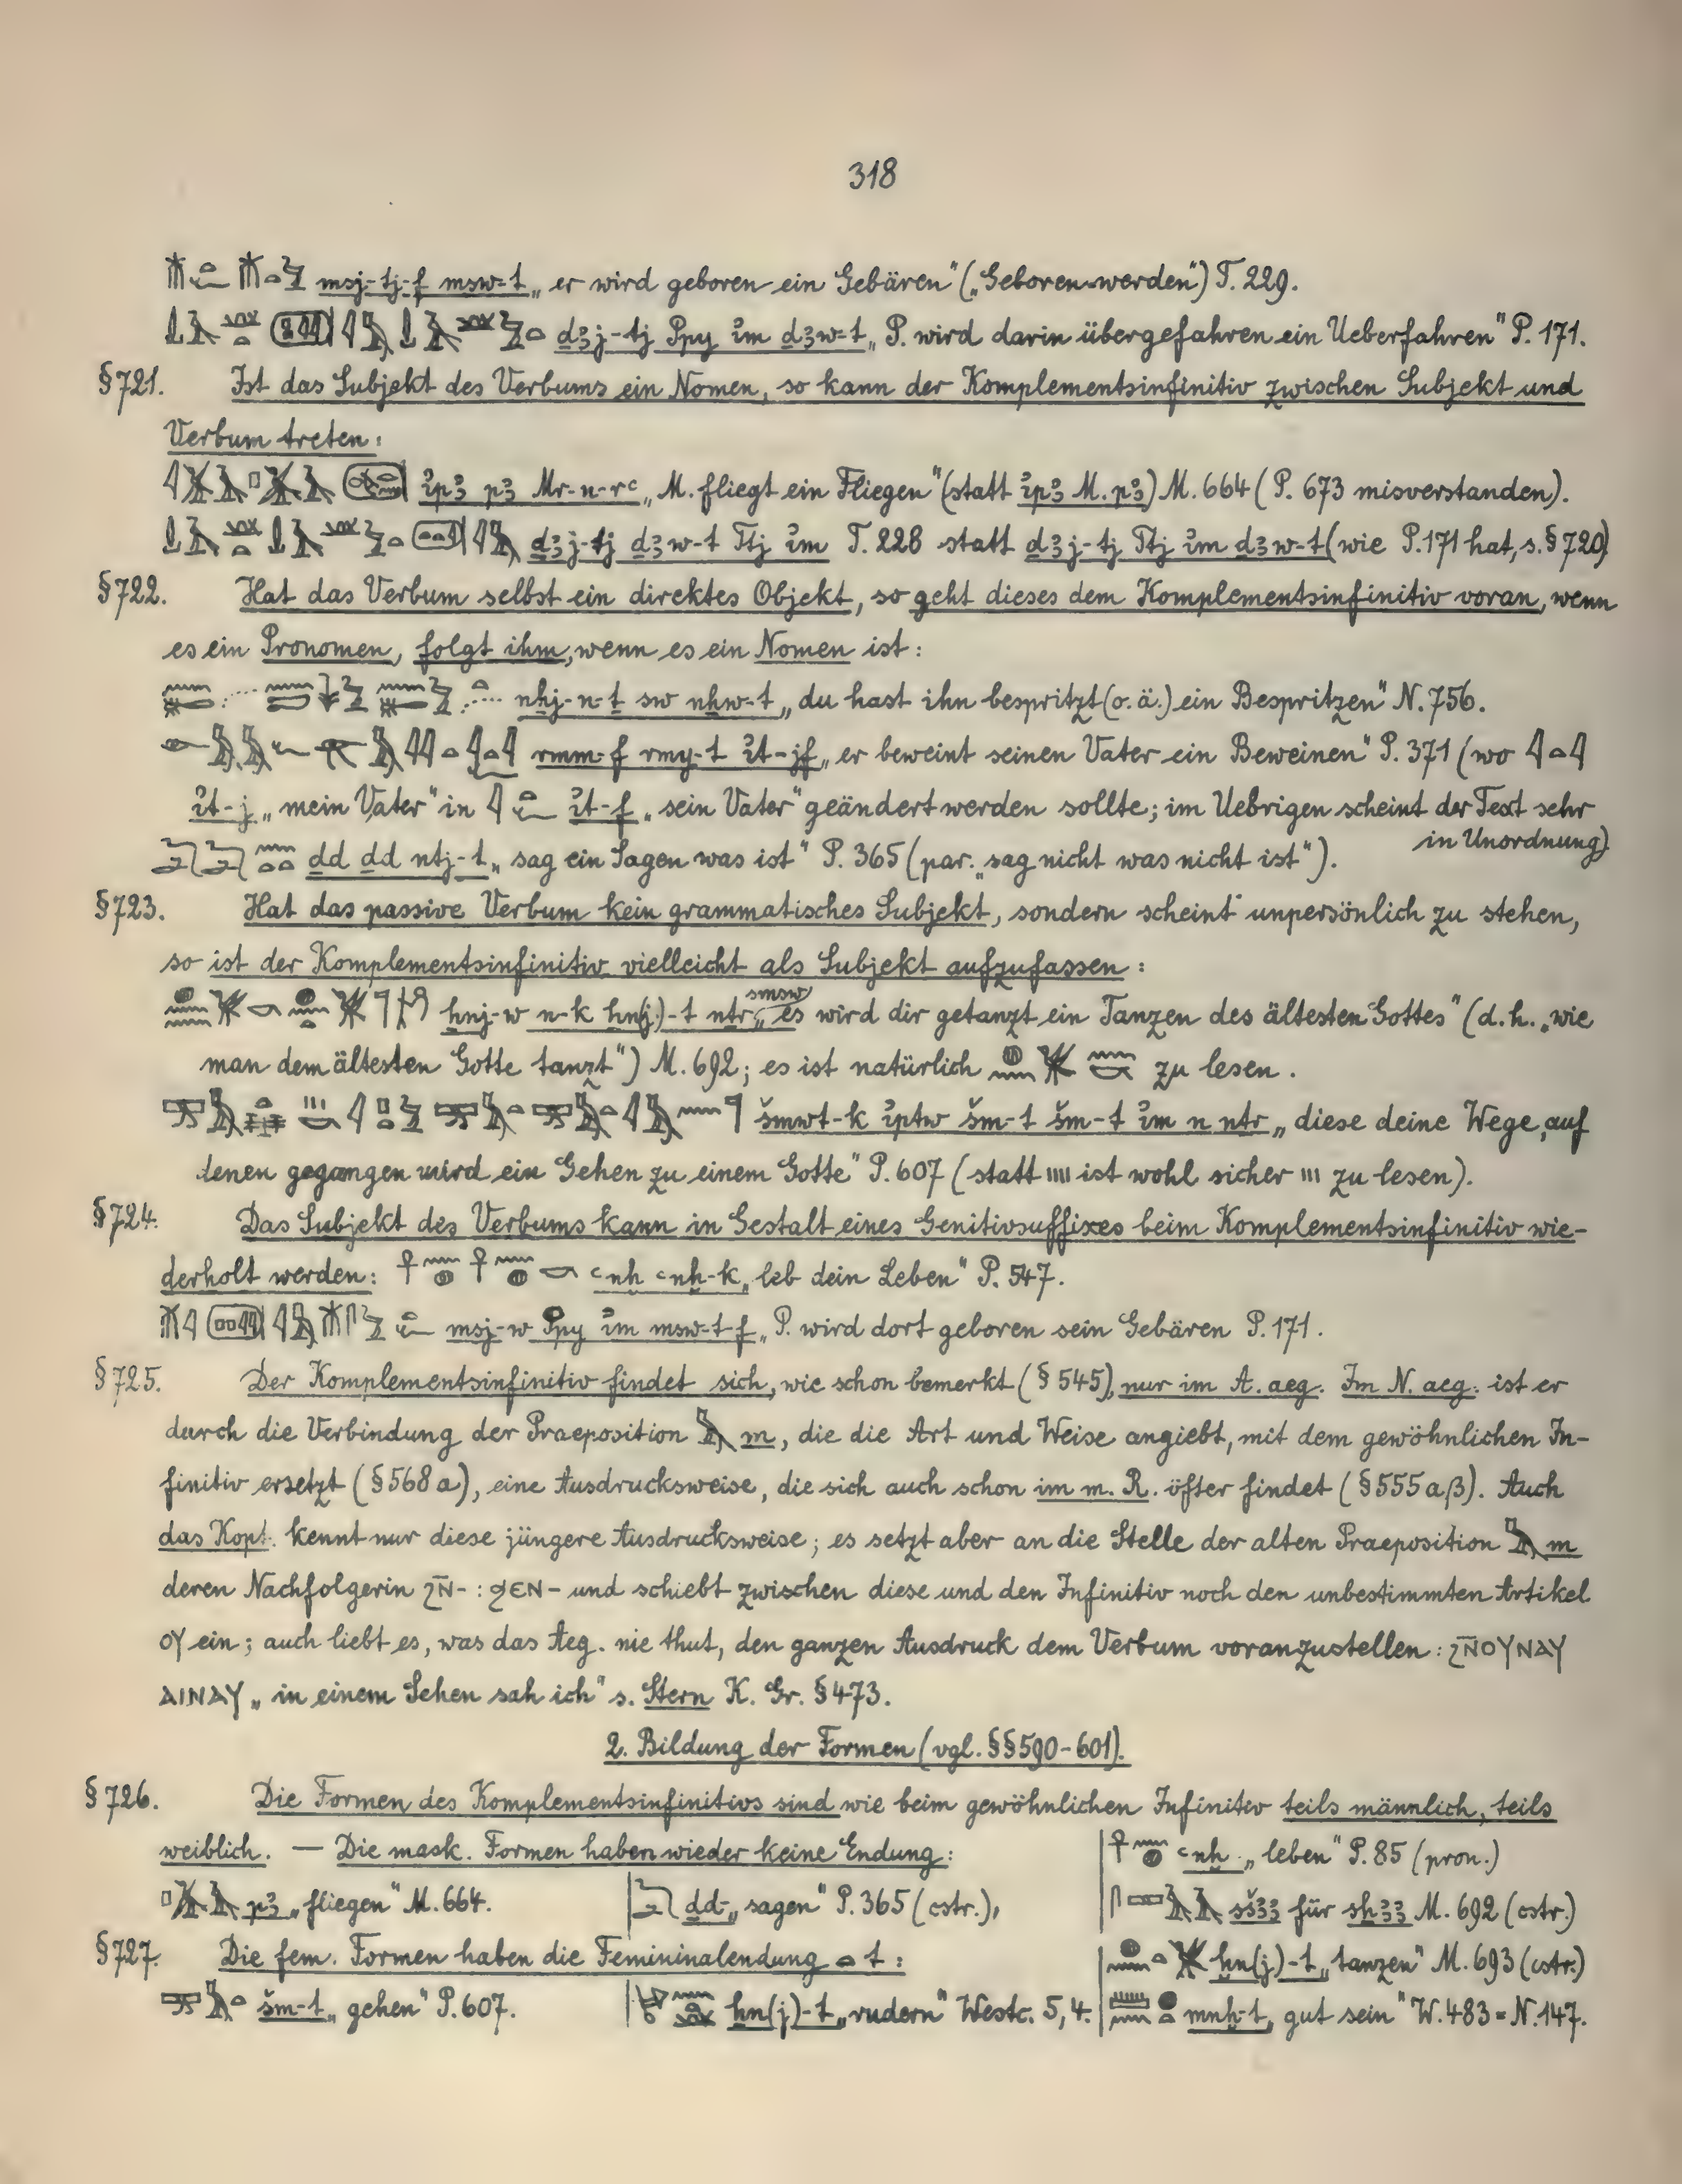 318
msj-tj-f msw-t „er wird geboren ein Gebären“ („Geboren-werden“) T. 229.
ḏꜣj-tj Ppy ı͗m ḏꜣw-t „P. wird darin übergefahren ein Ueberfahren“ P. 171.
§ 721. Ist das Subjekt des Verbums ein Nomen, so kann der Komplementsinfinitiv zwischen Subjekt und
Verbum treten:
ı͗pꜣ pꜣ Mr-n-rꜥ „M. fliegt ein Fliegen“ (statt ı͗pꜣ M. pꜣ) M. 664 (P. 673 misverstanden).
ḏꜣj-tj ḏꜣw-t Ttj ı͗m T. 228 statt ḏꜣj-tj Ttj ı͗m ḏꜣw-t (wie P. 171 hat, s. § 720)
§ 722. Hat das Verbum selbst ein direktes Objekt, so geht dieses dem Komplementsinfinitiv voran, wenn
es ein Pronomen, folgt ihm, wenn es ein Nomen ist:
nẖj-n-ṯ sw nẖw-t „du hast ihn bespritzt (o. ä.) ein Bespritzen“ N. 756.
rmm-f rmy-t ı͗t-jf „er beweint seinen Vater ein Beweinen“ P. 371 (wo 𓇋𓏏𓇋
ı͗t-j „mein Vater“ in 𓇋𓏏𓆑 ı͗t-f „sein Vater“ geändert werden sollte; im Uebrigen scheint der Text sehr
in Unordnung)
ḏd ḏd ntj-t „sag ein Sagen was ist“ P. 365 (par. „sag nicht was nicht ist“).
§ 723. Hat das passive Verbum kein grammatisches Subjekt, sondern scheint unpersönlich zu stehen,
so ist der Komplementsinfinitiv vielleicht als Subjekt aufzufassen:
ḫnj-w n-k ḫn(j)-t nṯr smsw „es wird dir getanzt ein Tanzen des ältesten Gottes“ (d. h. „wie
man dem ältesten Gotte tanzt“) M. 692; es ist natürlich zu lesen.
šmwt-k ı͗ptw šm-t šm-t ı͗m n nṯr „diese deine Wege, auf
denen gegangen wird ein Gehen zu einem Gotte“ P. 607 (statt IIII ist wohl sicher III zu lesen).
§ 724. Das Subjekt des Verbums kann in Gestalt eines Genitivsuffixes beim Komplementsinfinitiv wie-
derholt werden: 𓋹𓈖𓐍 𓋹𓈖𓐍𓎡 ꜥnḫ ꜥnḫ-k „leb dein Leben“ P. 547.
msj-w Ppy ı͗m msw-t-f „P. wird dort geboren sein Gebären P. 171.
§ 725. Der Komplementsinfinitiv findet sich, wie schon bemerkt (§ 545), nur im A. aeg. Im N. aeg. ist er
durch die Verbindung der Praeposition 𓅓 m, die die Art und Weise angiebt, mit dem gewöhnlichen In-
finitiv ersetzt (§ 568 a), eine Ausdrucksweise, die sich auch schon im m. R. öfter findet (§ 555 aβ). Auch
das Kopt. kennt nur diese jüngere Ausdrucksweise; es setzt aber an die Stelle der alten Praeposition 𓅓 m
deren Nachfolgerin ϩⲛ̄- : ϧⲉⲛ- und schiebt zwischen diese und den Infinitiv noch den unbestimmten Artikel
ⲟⲩ ein; auch liebt es, was das Aeg. nie thut, den ganzen Ausdruck dem Verbum voranzustellen: ϩⲛ̄ⲟⲩⲛⲁⲩ
ⲁⲓⲛⲁⲩ „in einem Sehen sah ich“ s. Stern K. Gr. § 473.
2. Bildung der Formen (vgl. §§ 590-601).
§ 726. Die Formen des Komplementsinfinitivs sind wie beim gewöhnlichen Infinitiv teils männlich, teils
weiblich. — Die mask. Formen haben wieder keine Endung: | 𓋹𓈖𓐍 ꜥnḫ „leben“ P. 85 (pron.)
pꜣ „fliegen“ M. 664. | ḏd- „sagen“ P. 365 (cstr.), | sšꜣꜣ für sẖꜣꜣ M. 692 (cstr.)
§ 727. Die fem. Formen haben die Femininalendung 𓏏 t: | ḫn(j)-t „tanzen“ M. 693 (cstr.)
šm-t „gehen“ P. 607. | ẖn(j)-t „rudern“ Westc. 5, 4. | mnḫ-t „gut sein“ W. 483 = N. 147.